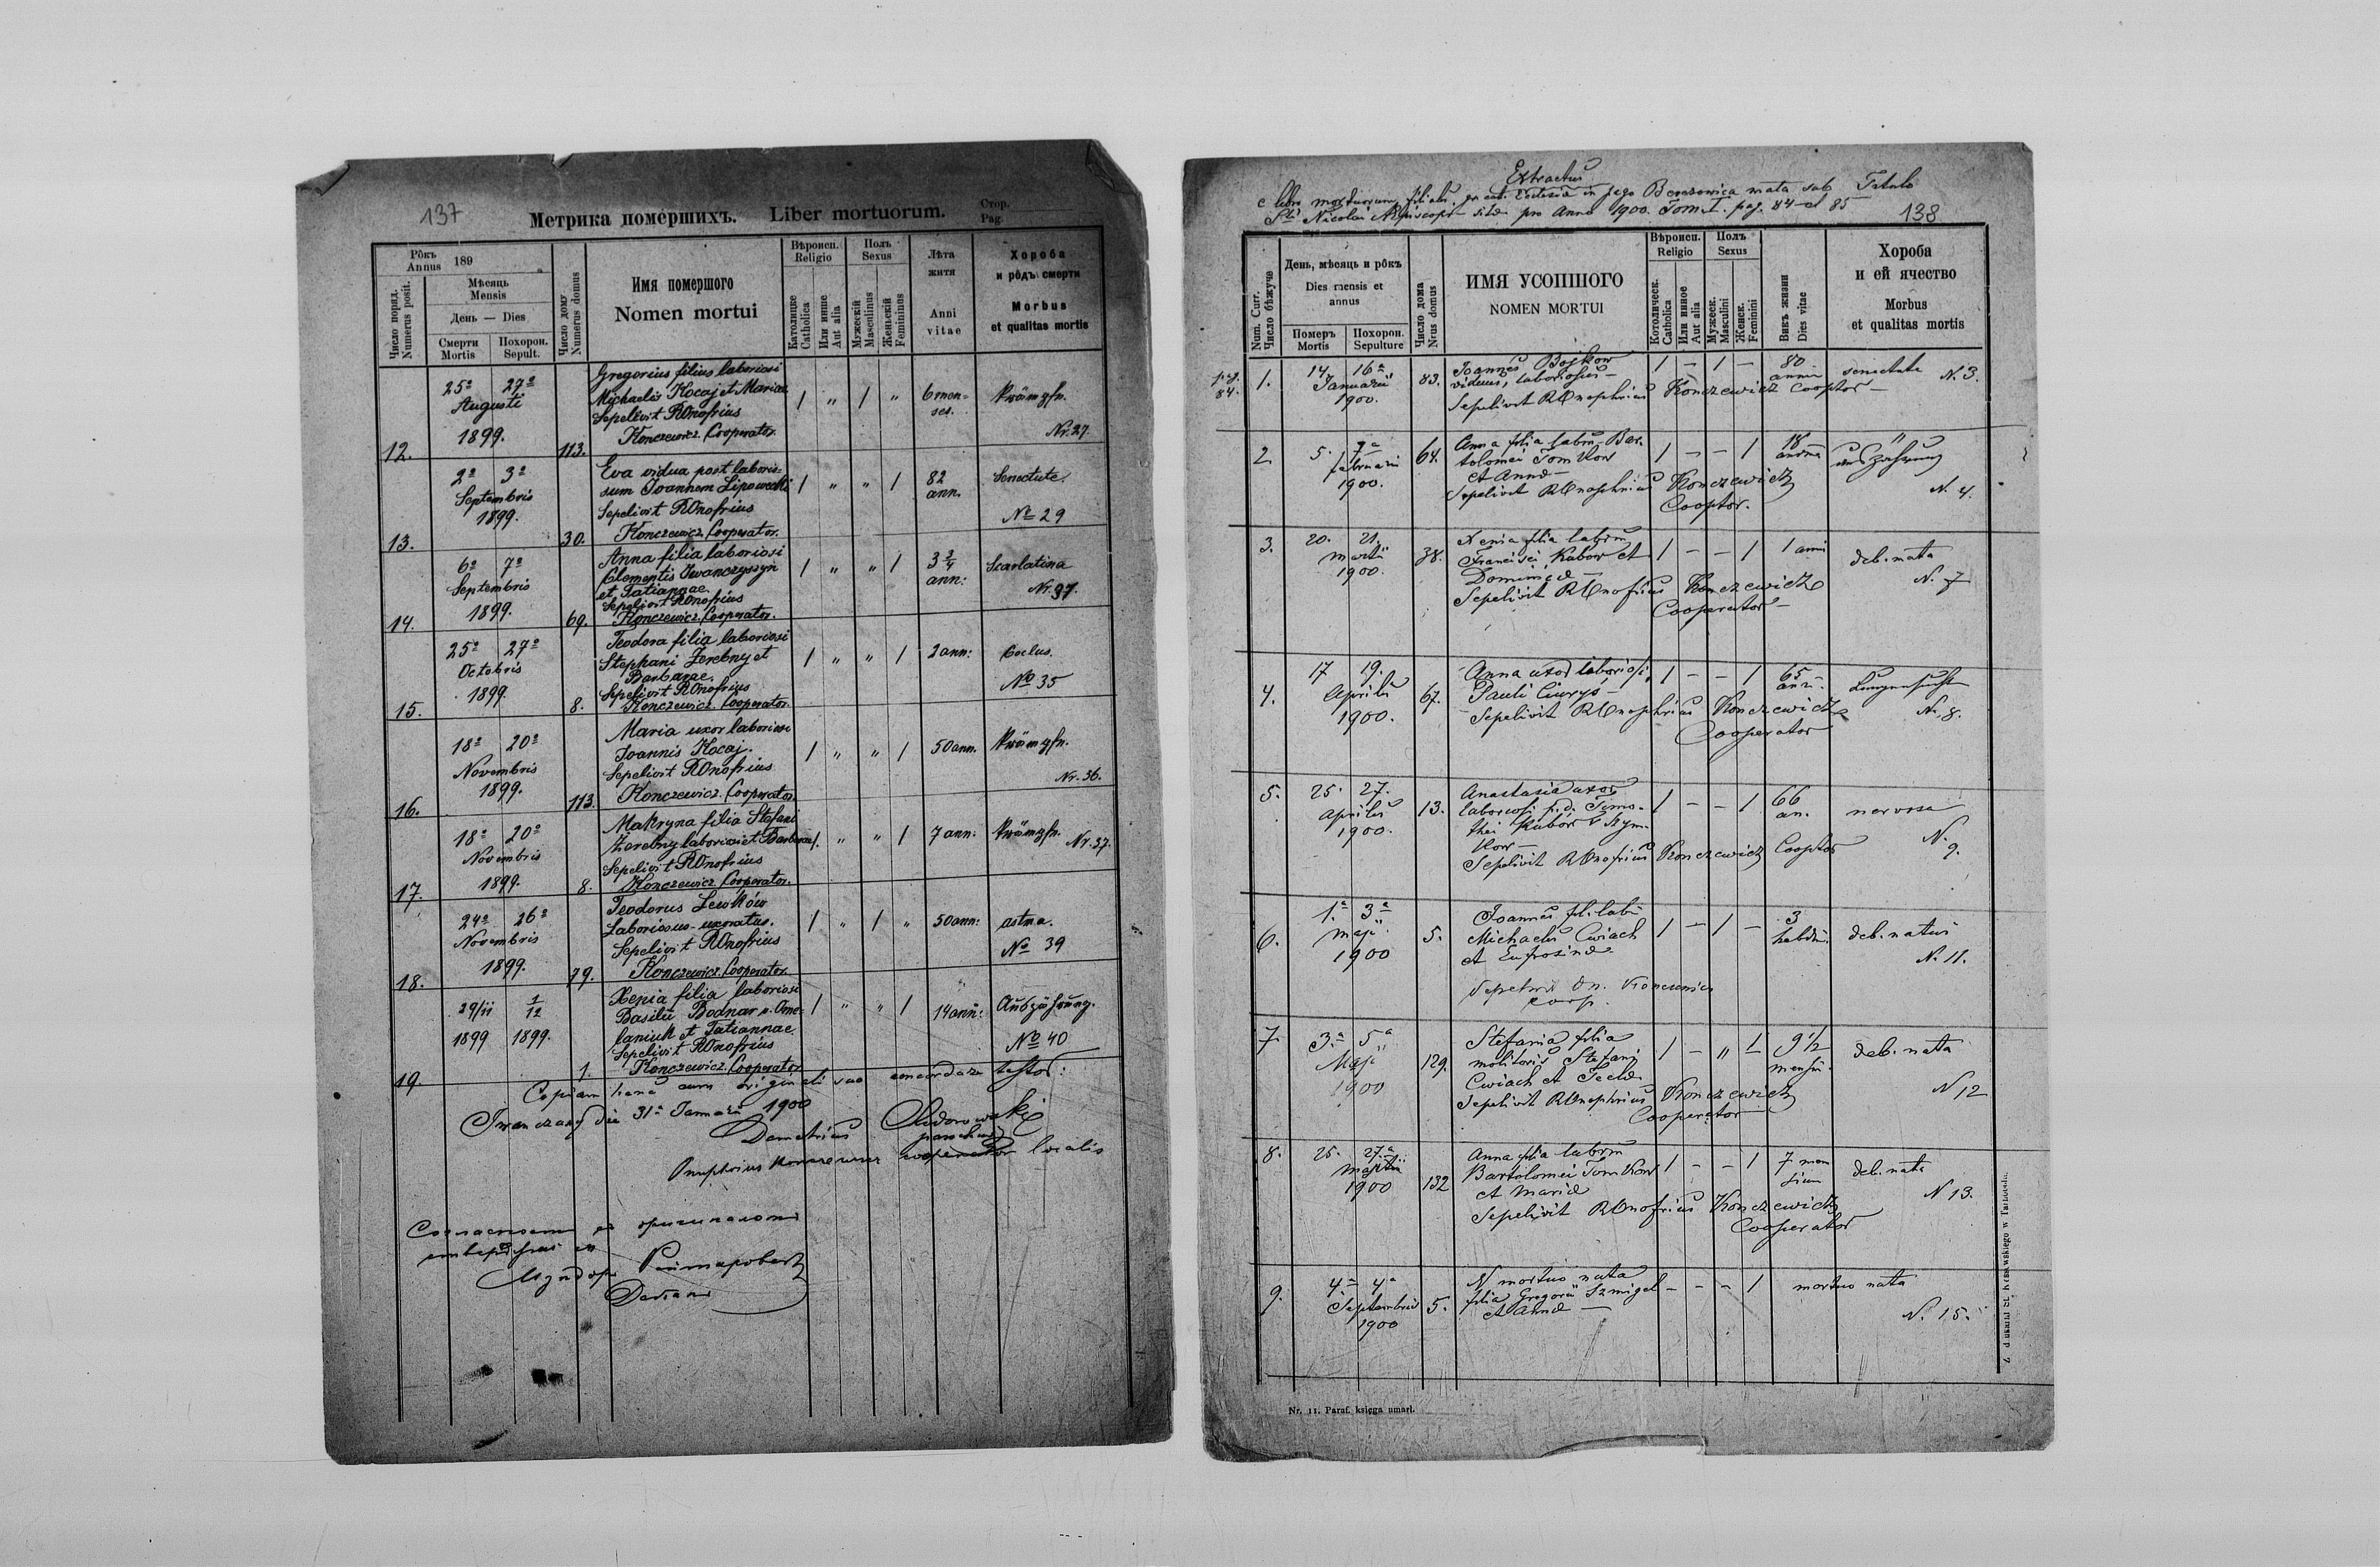 137
Метрика помершихъ. Liber mortuorum.
Стор.
Pag.
Рôкъ
Annus 189
Число поряд.
Numerus posit.
Мѣсяць
Mensis
День — Dies
Смерти
Mortis
Похорон.
Sepult.
Число дому
Numerus domus
Имя помершого
Nomen mortui
Вѣроисп.
Religio
Католицке
Catholica
Или инше
Aut alia
Полъ
Sexus
Мужескій
Masculinus
Женьскій
Femininus
Лѣта
житя
Anni
vitae
Хороба
и рôдъ смерти
Morbus
et qualitas mortis
12.
25ª 27ª
Augusti
1899.
113.
Gregorius filius laboriosi
Michaelis Kocaj et Mariae
Sepelivit ROnofrius
Konczewicz. Cooperator.
1 " 1 "
6 men-
ses.
Krämpfe.
Nr. 27.
13.
2ª 3ª
Septembris
1899.
30.
Eva vidua post laborio=
sum Joannem Lipowecki
Sepelivit ROnofrius
Konczewicz. Cooperator.
1 " " 1
82
ann.
Senectute.
№ 29
14.
6ª 7ª
Septembris
1899.
69.
Anna filia laboriosi
Clementis Iwanczyszyn
et Tatiannae.
Sepelivit ROnofrius
Konczewicz. Cooperator.
1 " " 1
3 3/4
ann:
Scarlatina
15.
25ª 27ª
Octobris
1899.
8.
Teodora filia laboriosi
Stephani Zerebny et
Barbarae.
Sepelivit ROnofrius
Konczewicz. Cooperator.
1 " " 1
2 ann:
№ 35
16.
18ª 20ª
Novembris
1899.
113.
Maria uxor laboriosi
Joannis Kocaj.
Sepelivit ROnofrius
Konczewicz. Cooperator.
1 " " 1
50 ann.
Krämpfe.
Nr. 36.
17.
18ª 20ª
Novembris
1899.
8.
Makryna filia Stefani
Zerebny laboriosi et Barbarae
Sepelivit ROnofrius
Konczewicz. Cooperator.
1. " " 1
7 ann:
Krämpfe.
Nr. 37.
18.
24ª 26ª
Novembris
1899.
79.
Teodorus Lewków
Laboriosus-uxoratus.
Sepelivit ROnofrius
Konczewicz. Cooperator.
1 " 1 "
50 ann:
astma.
№ 39
19.
29/11 1/12
1899 1899.
1.
Xenia filia laboriosi
Basilii Bodnar v. Ome=
laniuk et Tatiannae
Sepelivit ROnofrius
Konczewicz. Cooperator
1 " " 1
14 ann:
Auszehrung.
№ 40
Copiam hanc cum originali suo concordare testor:
die 31ª Januarii 1900
Demetrius
parochus
cooperator localis
Extractus
e libro mortuorum filialis gr. cat. Ecclesia in pago Berezowica mała sub Titulo
Sti Nicolai pro Anno 1900. Tom. I. pag. 84 et 85
138
Num. Curr.
Число бѣжуче
День, мѣсяць и рôкъ
Dies mensis et
annus
Померъ
Mortis
Похорон.
Sepulture
Число дома
Nrus domus
ИМЯ УСОПШОГО
NOMEN MORTUI
Вѣроисп.
Religio
Котолическ.
Catholica
Или инное
Aut alia
Полъ
Sexus
Мужеск.
Masculini
Женск.
Feminini
Викъ жизни
Dies vitae
Хороба
и ей ячество
Morbus
et qualitas mortis
pag.
84.
1.
14. 16ª
Januarii
1900.
83.
Joannes Bojkow
viduus, laboriosus -
Sepelivit ROnophrius Konczewicz Cooptor -
1 - 1 -
80
senectute
N. 3.
2
5. 7ª
februarii
1900.
64.
Anna filia Bar.
tolomei Tomkow
et Annae -
Sepelivit ROnophrius Konczewicz
Cooptor.
1 - - 1
18
Auszehrung
N. 4.
3.
20. 21.
Martii
1900.
38.
Xenia filia
Francisci Kubow et
Dominicae -
Sepelivit ROnofrius Konczewicz
Cooperator -
1 - - 1
1 anni
deb. nata
N. 7
4.
17 19.
Aprilis
1900.
67.
Anna uxor laboriosi
Pauli Ciurys -
Sepelivit ROnophrius Konczewicz
Cooperator
1 - - 1
65
Lungensucht
N. 8.
5.
25. 27.
Aprilis
1900.
13.
Anastasia uxor
laboriosi p.d. Timo-
thei Kubow v Szym-
kow -
Sepelivit ROnofrius Konczewicz Cooptor
1 - - 1
66
an.
nervosa
N.
9.
6.
1.ª 3ª
Maji
1900
5.
Joannes fil. lab.
Michaelis Cwiach
et Eufrosinae
1 - 1 -
3
hebdm.
deb. natus
N. 11.
7
3.ª 5ª
Maji
1900
129.
Stefania filia
molitoris Stefani
Cwiach et Teclae
Sepelivit ROnophrius Konczewicz
Cooperator
1 - " 1
9 1/2
mensiu.
deb. nata
N 12
8.
25. 27.ª
1900
132
Anna filia
Bartolomei Tomkow
et Mariae
Sepelivit ROnofrius Konczewicz
Cooperator
1 - - 1
7 men
sium
deb. nata
N 13.
9.
4.ª 4ª
Septembris
1900
5.
N mortuo nata
filia Gregorii Szmigel
et Annae -
- - - 1
mortuo nata
N. 15.
Nr. 11. Paraf. księga umarł.